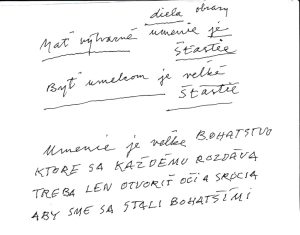 diela obrazy
Mať výtvarné umenie je
šťastie
Byť umelcom je veľké
šťastie
Umenie je veľké BOHATSTVO
KTORÉ SA KAŽDÉMU ROZDÁVA
TREBA LEN OTVORIŤ OČI A SRDCIA
ABY SME SA STALI BOHATŠÍMI